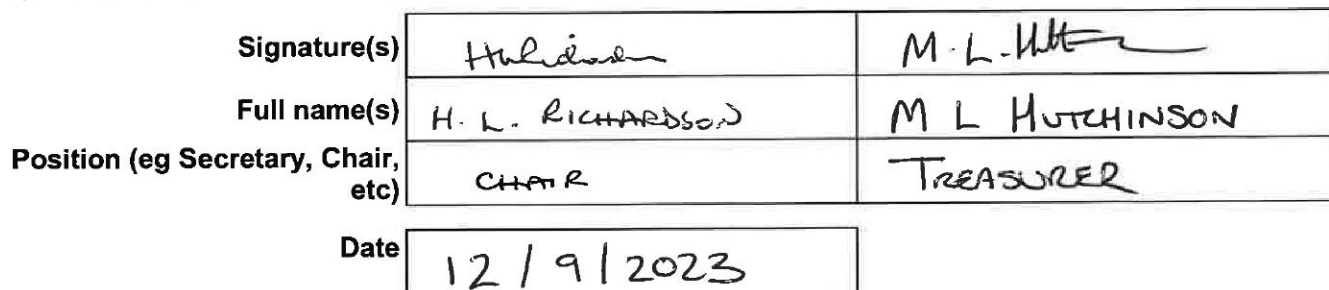 Signature(s) M. L.
Full name(s) H. L. RICHARDSON M L HUTCHINSON
Position (eg Secretary, Chair,
etc) CHAIR TREASURER
Date 12/9/2023